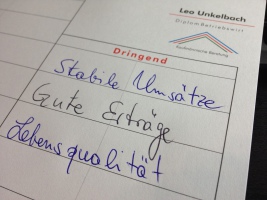 Leo Unkelbach
Diplom-Betriebswirt
Dringend
Stabile Umsätze
Gute Erträge
Lebensqualität